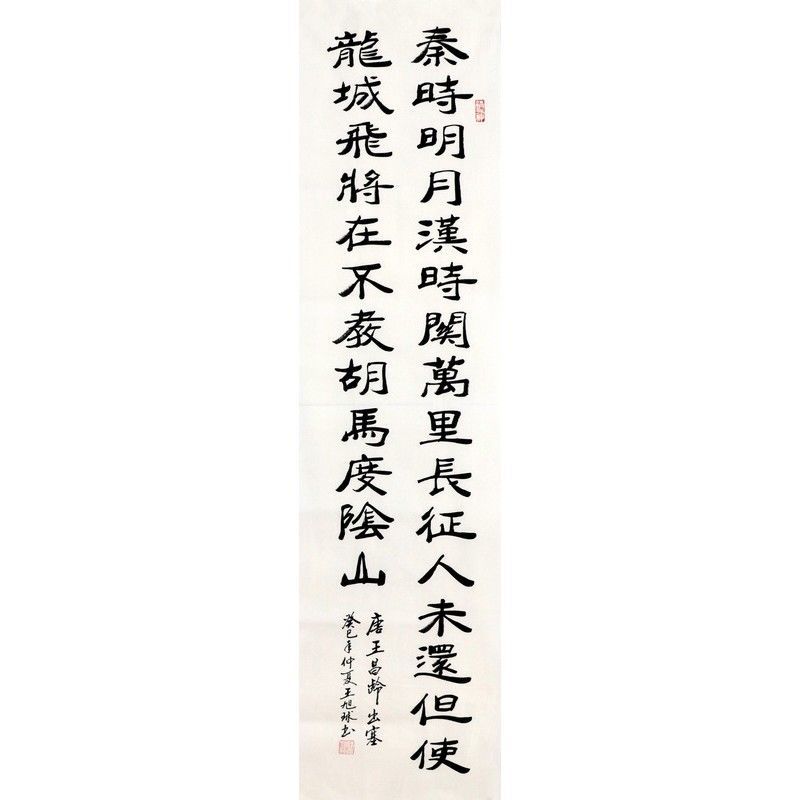 秦時明月漢時関萬里長征人未還但使
龍城飛將在不教胡馬度陰山
唐王昌龄出塞
癸巳年仲夏王旭球书